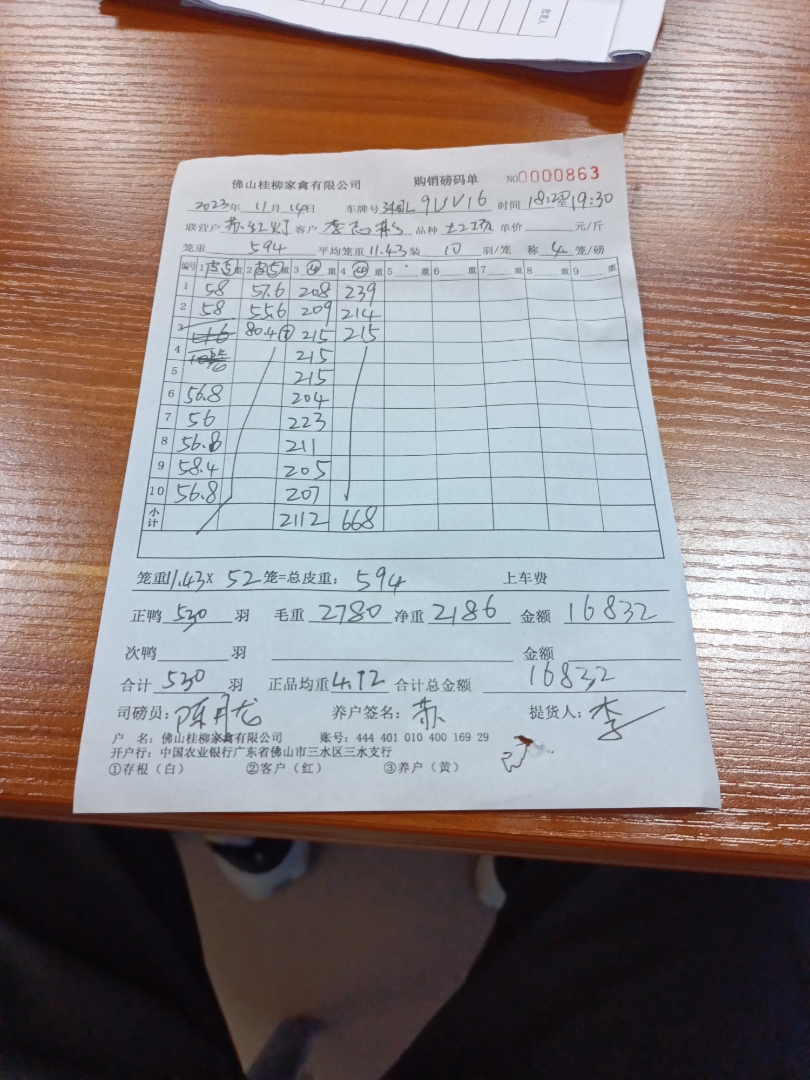 佛山桂柳家禽有限公司 购销磅码单 NO0000863
2023年 11月 14日 车牌号 9VV16 时间 至19:30
联营户 苏红灯 客户 李 品种 单价 元/斤
笼重 594 平均笼重11.43装 10 羽/笼 称 4 笼/磅
编号 1 皮⑤ 重 2 皮⑤ 重 3 ④ 重 4 ④ 重 5 重 6 重 7 重 8 重 9 重
1 58 57.6 208 239
2 58 55.6 209 214
3 80.4 215 215
4 215
5 215
6 56.8 204
7 56 223
8 56.8 211
9 58.4 205
10 56.8 207
小计 2112 668
笼重11.43X 52笼=总皮重: 594 上车费
正鸭 530 羽 毛重 2780 净重 2186 金额 16832
次鸭 羽 金额
合计 530 羽 正品均重4.12 合计总金额 16832
司磅员: 陈月龙 养户签名: 苏 提货人: 李
户 名: 佛山桂柳家禽有限公司 账号: 444 401 010 400 169 29
开户行: 中国农业银行广东省佛山市三水区三水支行
①存根(白) ②客户(红) ③养户(黄)